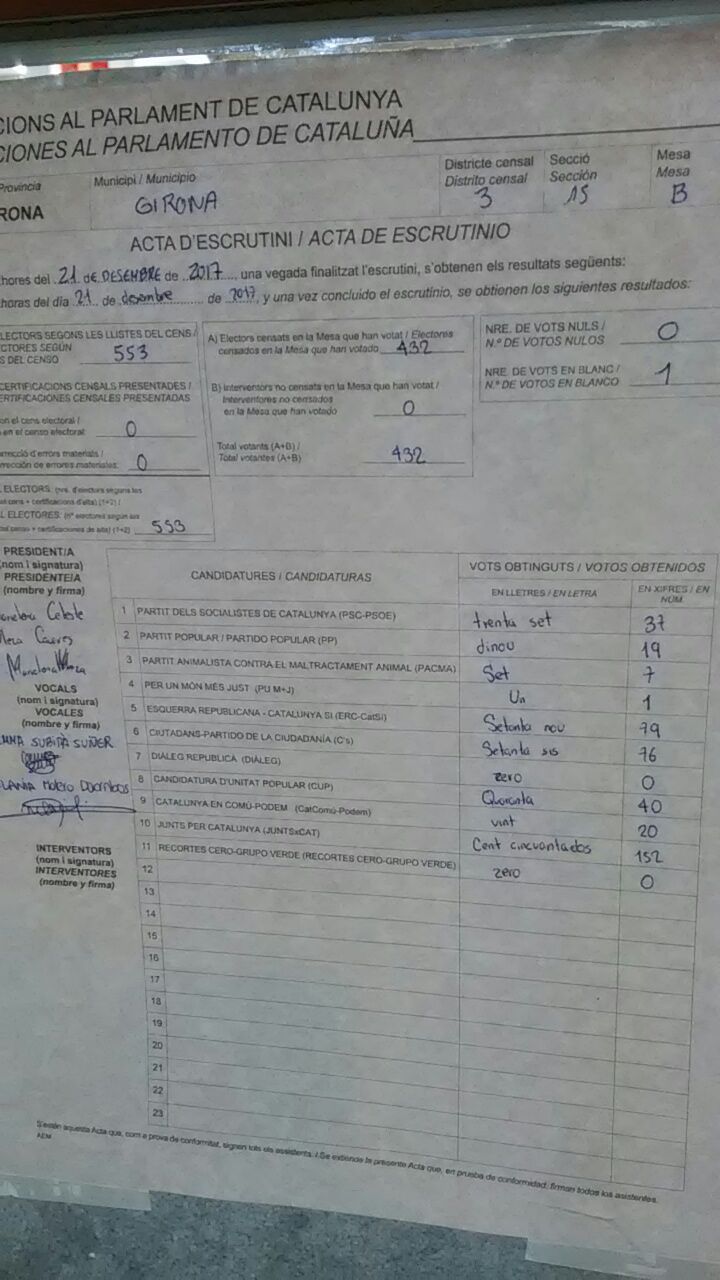 CIONS AL PARLAMENT DE CATALUNYA
CIONES AL PARLAMENTO DE CATALUÑA
Provincia Municipi / Municipio Districte censal Secció Mesa
Distrito censal Sección Mesa
RONA GIRONA 3 15 B
ACTA D'ESCRUTINI / ACTA DE ESCRUTINIO
hores del 21 de DESEMBRE de 2017, una vegada finalitzat l'escrutini, s'obtenen els resultats següents:
horas del día 21 de desembre de 2017, y una vez concluido el escrutinio, se obtienen los siguientes resultados:
LECTORS SEGONS LES LLISTES DEL CENS /
CTORES SEGÚN
S DEL CENSO 553
CERTIFICACIONS CENSALS PRESENTADES /
ERTIFICACIONES CENSALES PRESENTADAS
en el cens electoral /
en el censo electoral: 0
rrecció d'errors materials /
rrección de errores materiales: 0
L ELECTORS: (nre. d'electors segons les
cens + certificacions d'alta) (1+2) /
L ELECTORES: (nº electores según las
censo + certificaciones de alta) (1+2) 553
A) Electors censats en la Mesa que han votat / Electores
censados en la Mesa que han votado 432
B) Interventors no censats en la Mesa que han votat /
Interventores no censados
en la Mesa que han votado 0
Total votants (A+B) /
Total votantes (A+B) 432
NRE. DE VOTS NULS /
N.º DE VOTOS NULOS 0
NRE. DE VOTS EN BLANC /
N.º DE VOTOS EN BLANCO 1
PRESIDENT/A
(nom i signatura)
PRESIDENTE/A
(nombre y firma)
VOCALS
(nom i signatura)
VOCALES
(nombre y firma)
SUBIRÀ SUÑER
INTERVENTORS
(nom i signatura)
INTERVENTORES
(nombre y firma)
CANDIDATURES / CANDIDATURAS VOTS OBTINGUTS / VOTOS OBTENIDOS
EN LLETRES / EN LETRA EN XIFRES / EN NÚM.
1 PARTIT DELS SOCIALISTES DE CATALUNYA (PSC-PSOE) trenta set 37
2 PARTIT POPULAR / PARTIDO POPULAR (PP) dinou 19
3 PARTIT ANIMALISTA CONTRA EL MALTRACTAMENT ANIMAL (PACMA) Set 7
4 PER UN MÓN MÉS JUST (PU M+J) Un 1
5 ESQUERRA REPUBLICANA - CATALUNYA SÍ (ERC-CatSí) Setanta nou 79
6 CIUTADANS-PARTIDO DE LA CIUDADANÍA (C's) Setanta sis 76
7 DIÀLEG REPUBLICÀ (DIÀLEG) zero 0
8 CANDIDATURA D'UNITAT POPULAR (CUP) Quaranta 40
9 CATALUNYA EN COMÚ-PODEM (CatComú-Podem) vint 20
10 JUNTS PER CATALUNYA (JUNTSxCAT) Cent cincuantados 152
11 RECORTES CERO-GRUPO VERDE (RECORTES CERO-GRUPO VERDE) zero 0
12
13
14
15
16
17
18
19
20
21
22
23
S'estén aquesta Acta que, com a prova de conformitat, signen tots els assistents. / Se extiende la presente Acta que, en prueba de conformidad, firman todos los asistentes.